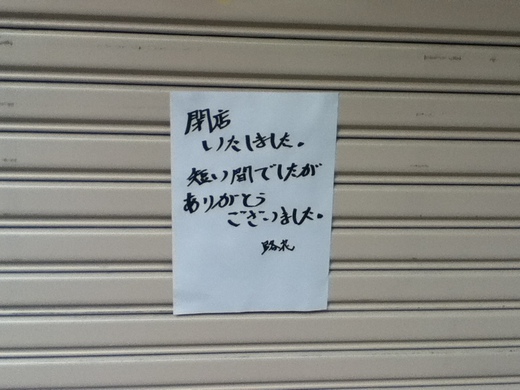 閉店
いたしました。
短い間でしたが
ありがとう
ございました。